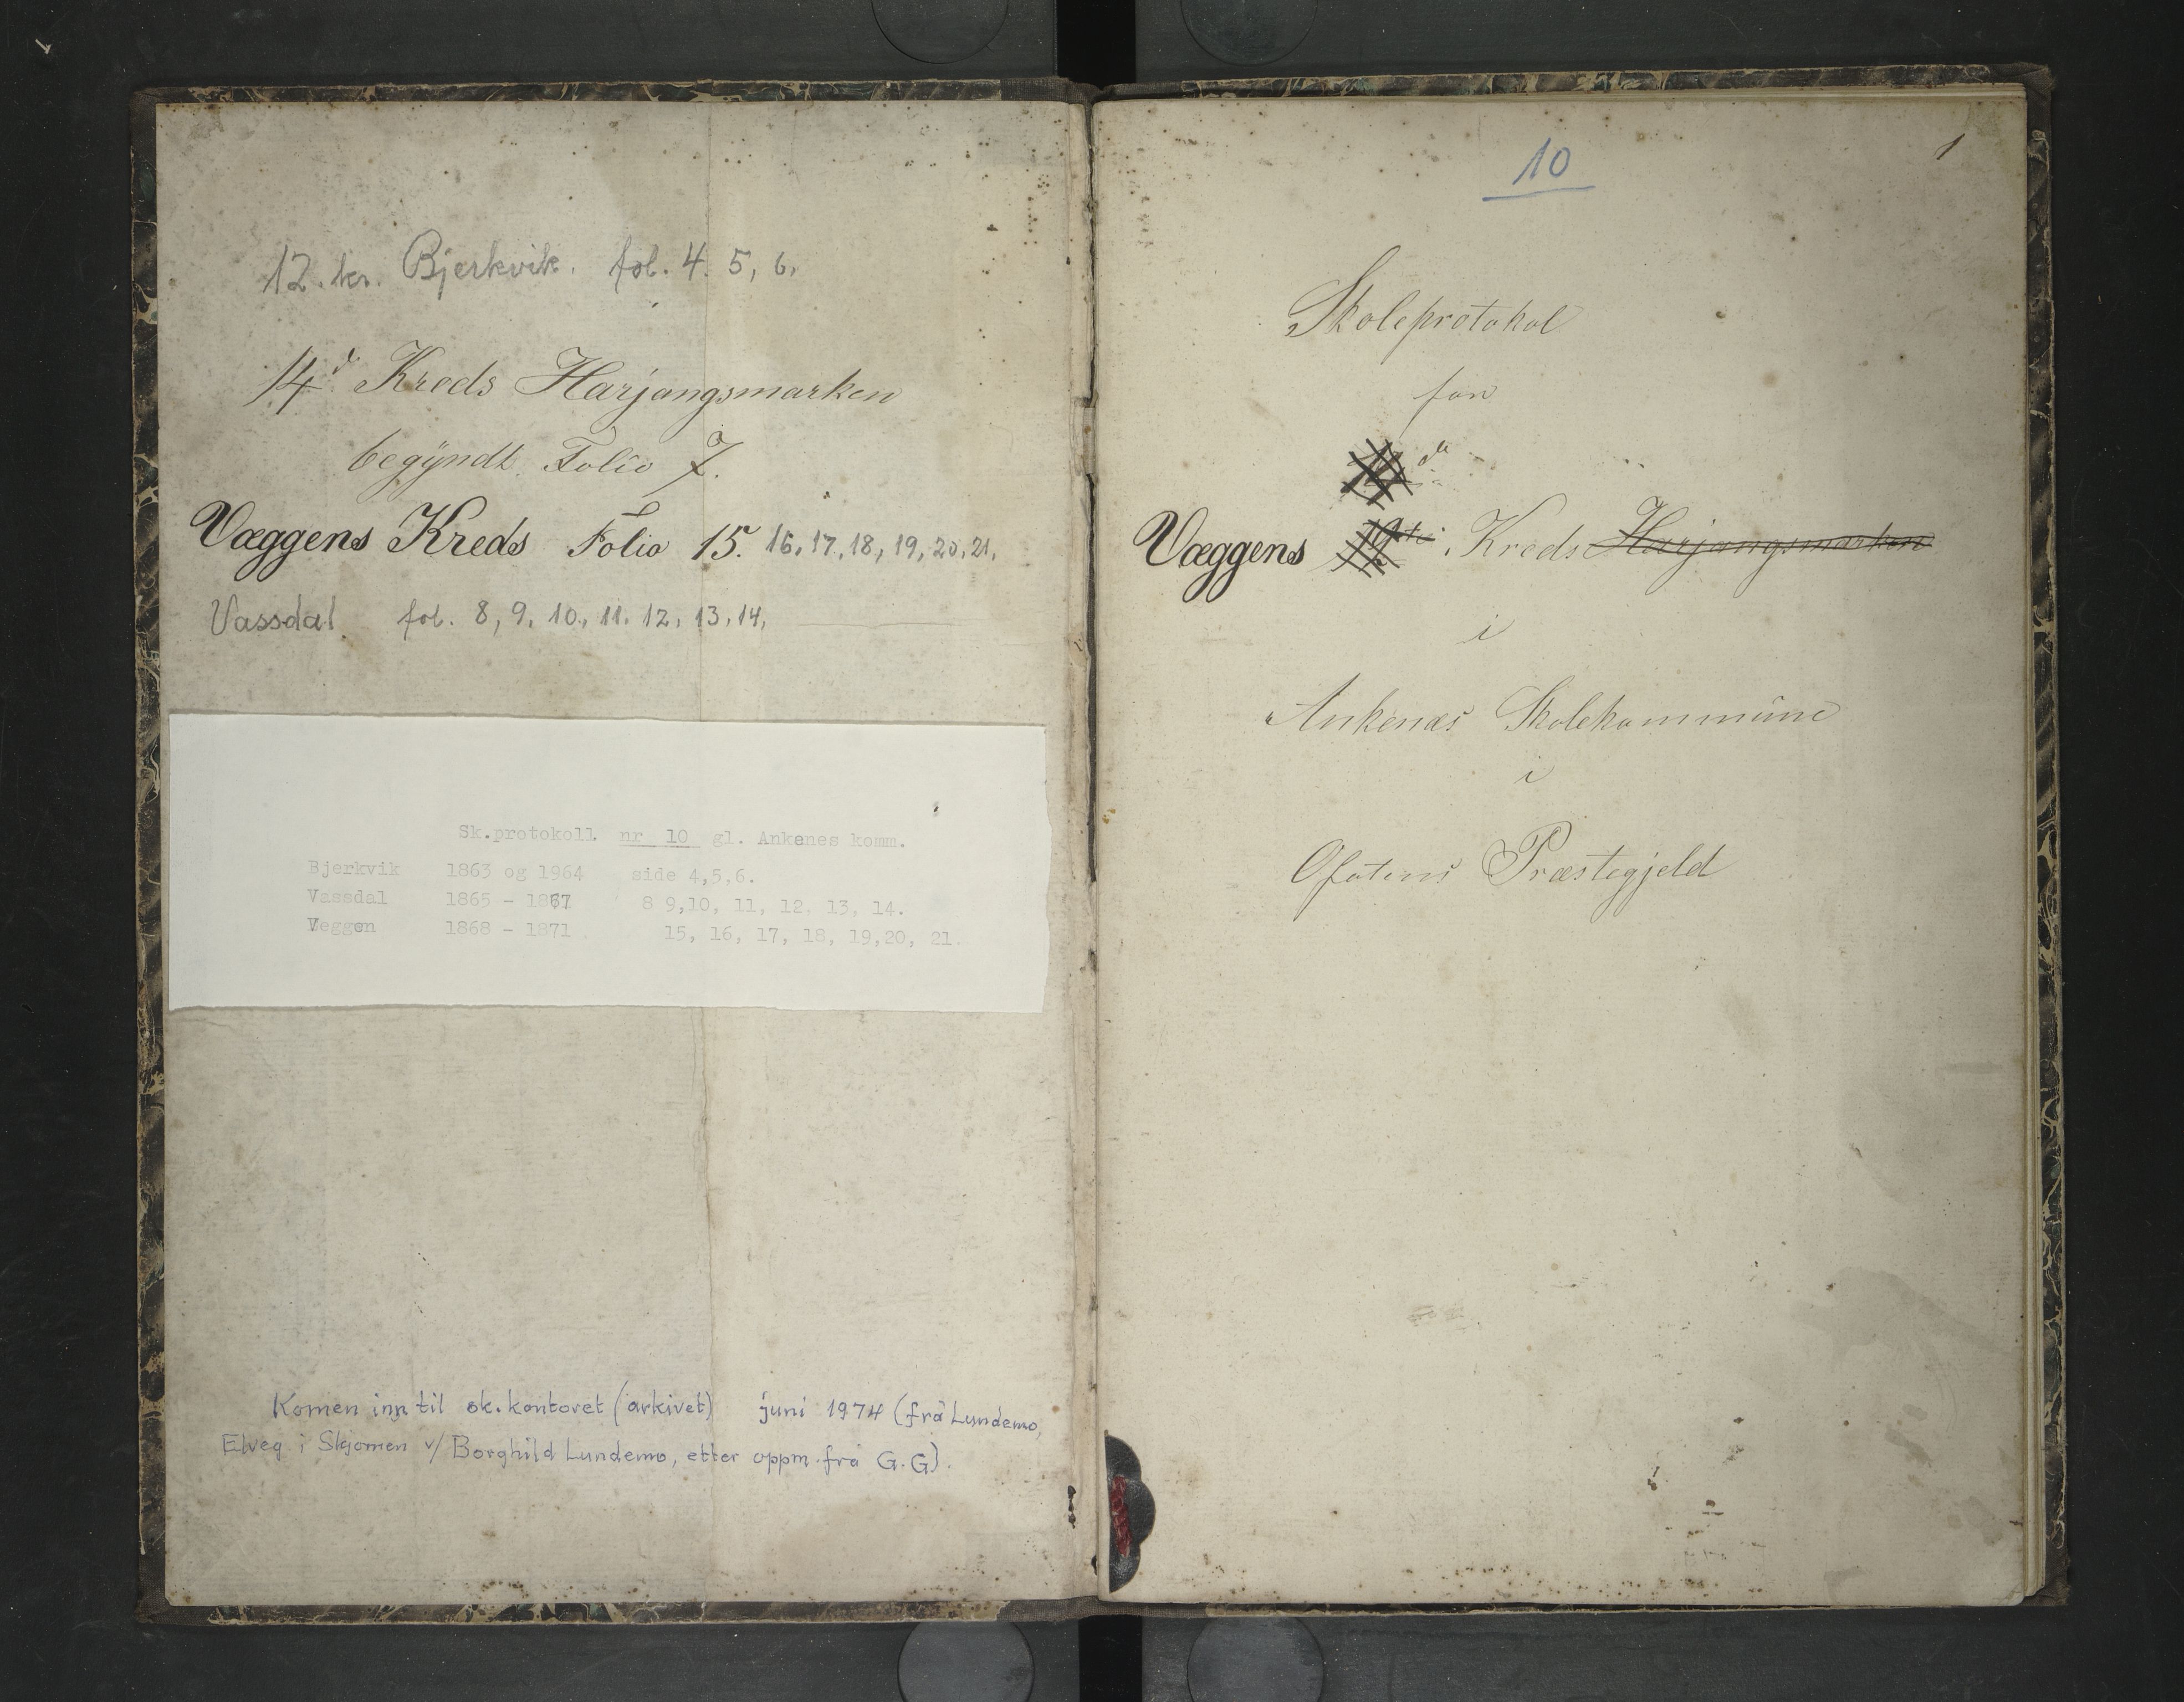 12. kr. Bjerkvik. fol. 4. 5, 6,
14d Kreds Harjangsmarken
begyndt Folio 7.
Væggens Kreds Folio 15. 16, 17, 18, 19, 20, 21,
Vassdal fol. 8, 9, 10, 11. 12, 13, 14,
Sk.protokoll nr 10 gl. Ankenes komm.
Bjerkvik 1863 og 1964 side 4,5,6.
Vassdal 1865 - 1867 8 9,10, 11, 12, 13, 14.
Veggen 1868 - 1871 15, 16, 17, 18, 19,20, 21.
Komen inn til sk.kontoret (arkivet) juni 1974 (frå Lundemo,
Elveg. i Skjomen v/ Borghild Lundemo, etter oppm. frå G.G).
10
1
Skoleprotokol
for
de
Væggens Kreds Harjangsmarken
i
Ankenæs Skolekommune
i
Ofotens Præstegjeld